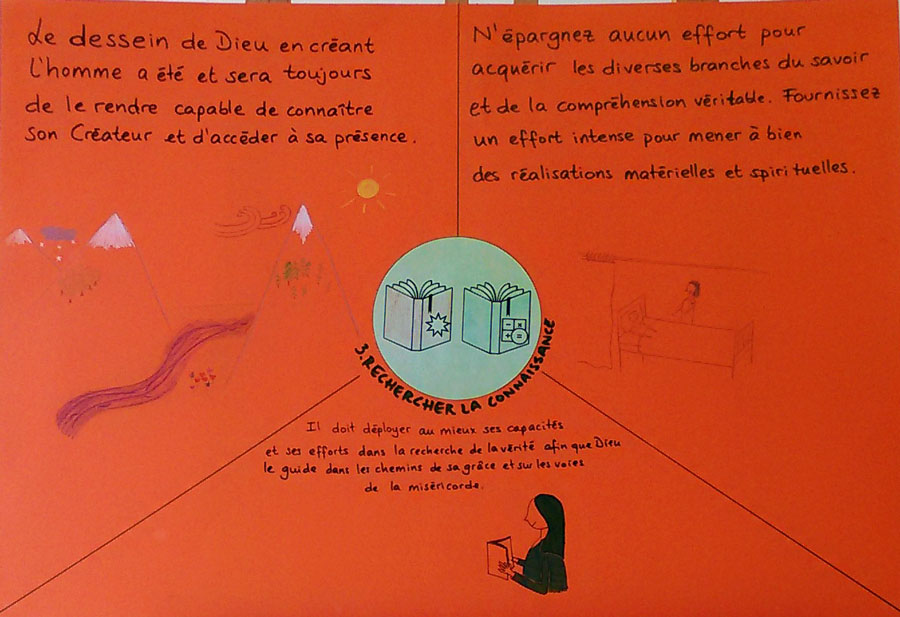 Le dessein de Dieu en créant
l'homme a été et sera toujours
de le rendre capable de connaître
son Créateur et d'accéder à sa présence.
N'épargnez aucun effort pour
acquérir les diverses branches du savoir
et de la compréhension véritable. Fournissez
un effort intense pour mener à bien
des réalisations matérielles et spirituelles.
3. RECHERCHER LA CONNAISSANCE
Il doit déployer au mieux ses capacités
et ses efforts dans la recherche de la vérité afin que Dieu
le guide dans les chemins de sa grâce et sur les voies
de la miséricorde.